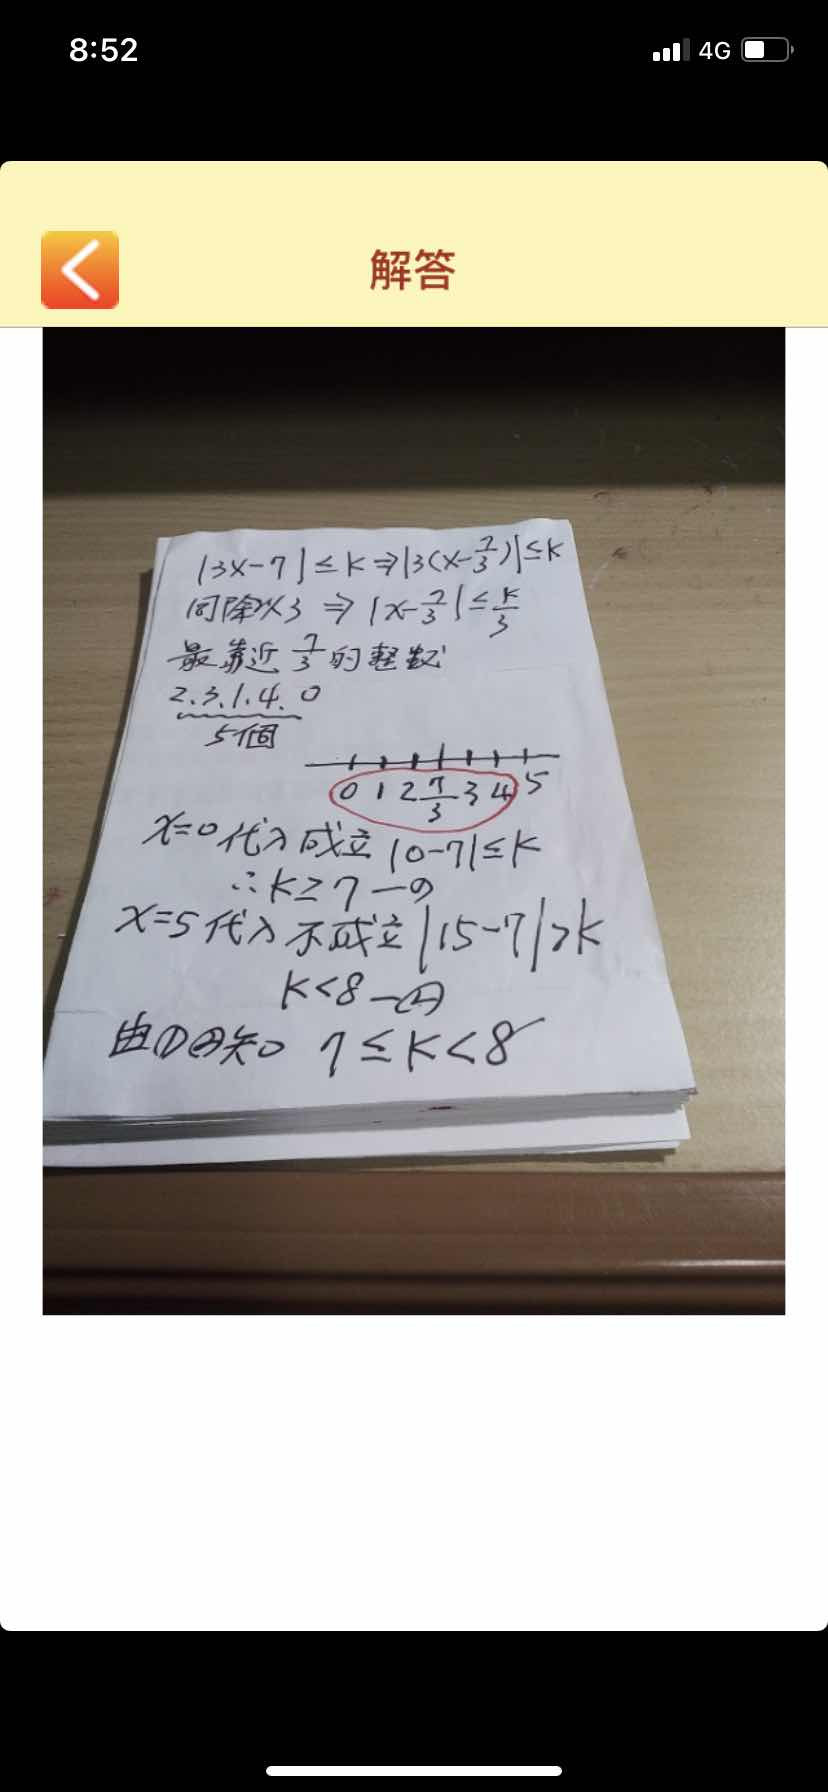 8:52
4G
解答
|3x-7|≤k⇒|3(x-7/3)|≤k
同除以3 ⇒ |x-7/3|≤k/3
最靠近 7/3 的整数
2.3.1.4.0
5個
0 1 2 7/3 3 4 5
x=0代入成立 |0-7|≤k
∴k≥7 —①
x=5代入不成立 |15-7|>k
k<8 —②
由①②知 7≤k<8